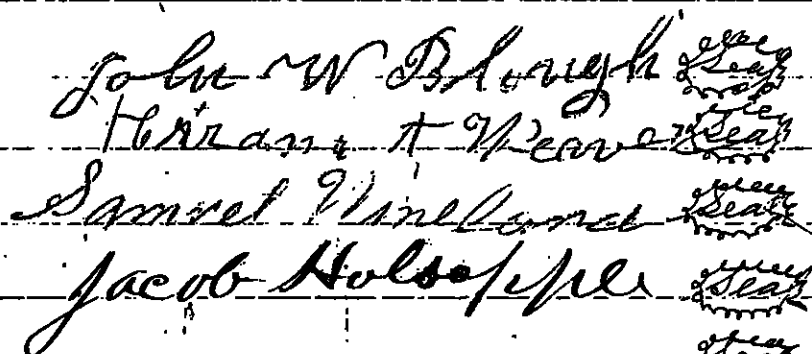 John W Blough Seal
Hiram A Weaver Seal
Samuel Vineland Seal
Jacob Holsopple Seal